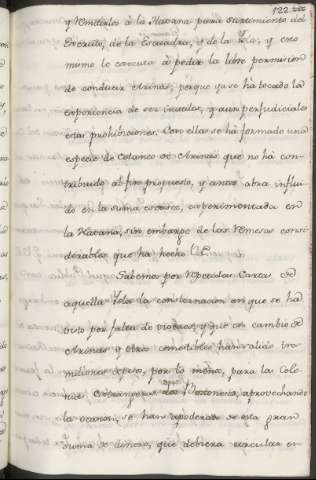 122
y remitirlos à la Havana para surtimiento del
Exercito, de la Escuadra, y de la Ysla, y esto
mismo lo executa à pedir la libre permision
de conducir Arinas; porque ya se há tocado la
experiencia de ser inutiles, y aun perjudiciales
estas prohibiciones. Con ellas se há formado una
especie de Estanco de Arinas que no há con-
tribuido al fin propuesto, y antes abra influi-
do en la suma escasez, experimentada en
la Havana, sin embargo de las remesas consi-
derables que ha hecho V.E.
Sabemos por repetidas Cartas de
aquella Ysla la consternacion en que se há
visto por falta de viveres, y que en cambio de
Arinas y otros comestibles han salido tres
millones de pesos, por lo menos, para las Colo-
nias Extrangeras que aprovechando
la ocasion, se han apoderado de esta gran
suma de dinero, que debiera circular en